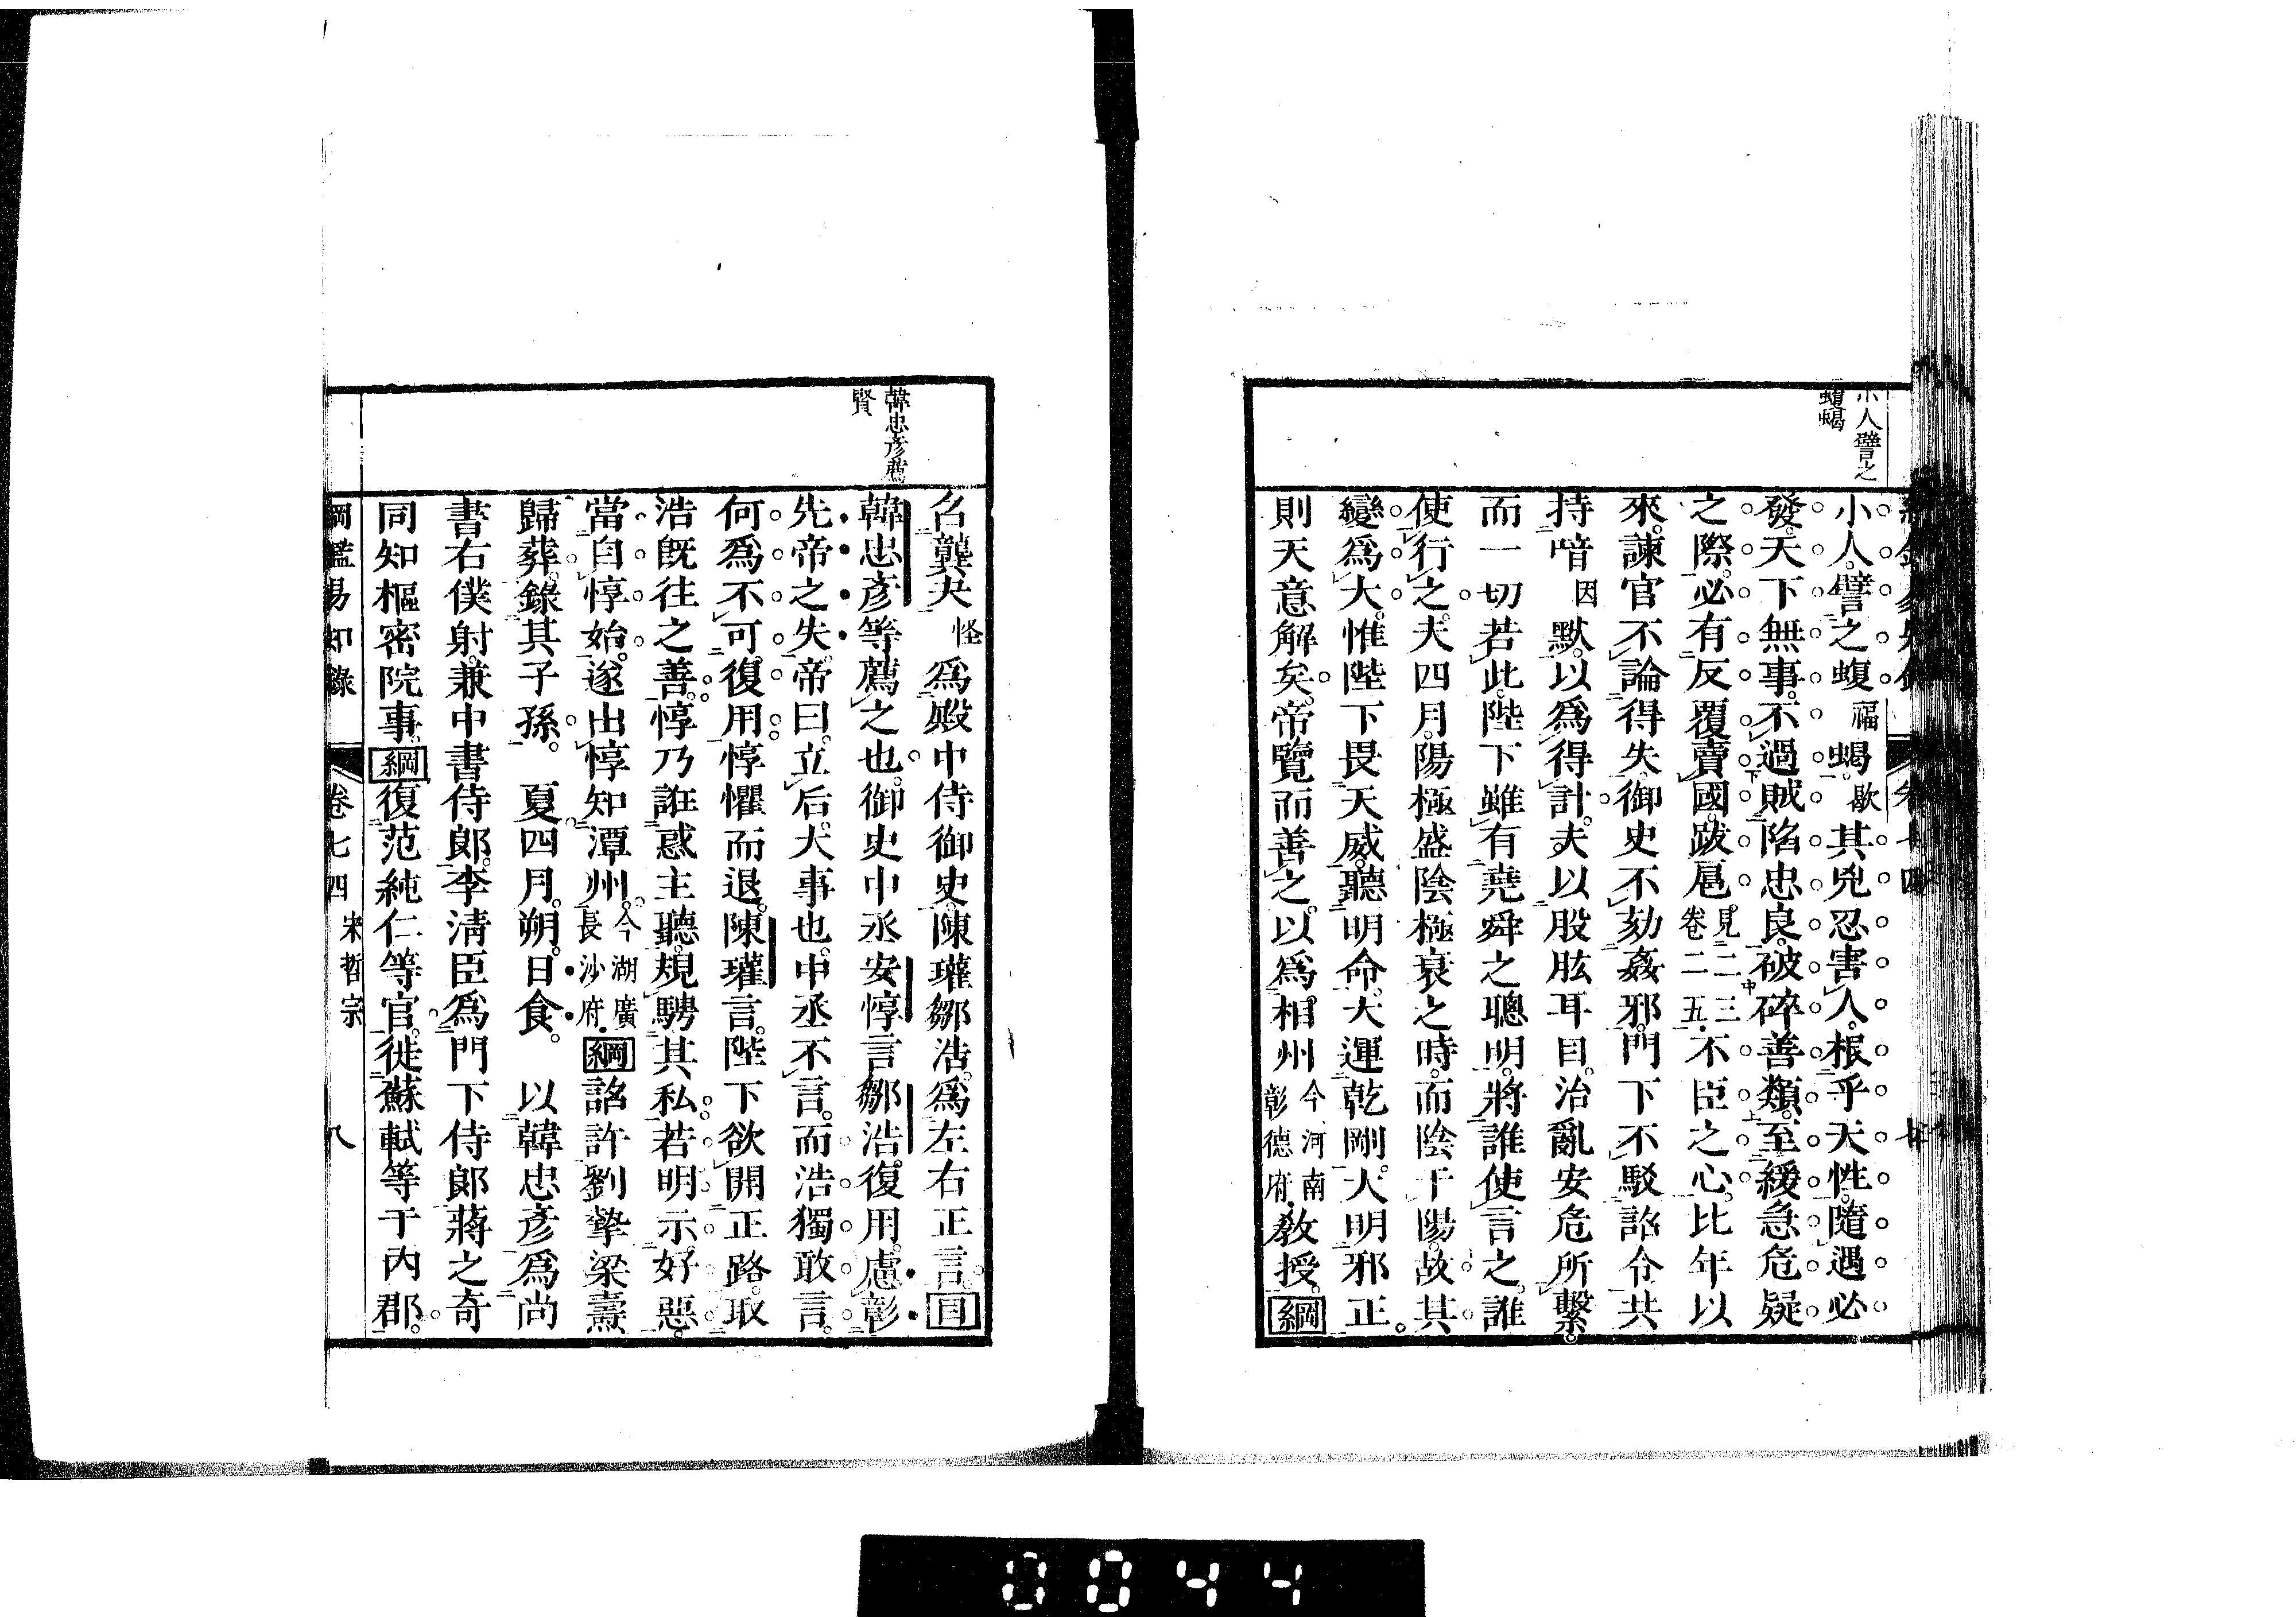 小人譬之
蝮蝎
小人譬之蝮福蝎歇其兇忍害人根乎天性隨遇必
發天下無事不過賊陷忠良破碎善類至緩急危疑
之際必有反覆賣國跋扈見二三卷二五不臣之心比年以
來諫官不論得失御史不劾姦邪門下不駁詔令共
持喑因默以爲得計夫以股肱耳目治亂安危所繫
而一切若此陛下雖有堯舜之聰明將誰使言之誰
使行之夫四月陽極盛陰極衰之時而陰干陽故其
變爲大惟陛下畏天威聽明命大運乾剛大明邪正
則天意解矣帝覽而善之以爲相州今河南彰德府教授綱
韓忠彥薦
賢
召龔夬怪爲殿中侍御史陳瓘鄒浩爲左右正言目
韓忠彥等薦之也御史中丞安惇言鄒浩復用慮彰
先帝之失帝曰立后大事也中丞不言而浩獨敢言
何爲不可復用惇懼而退陳瓘言陛下欲開正路取
浩旣往之善惇乃誑惑主聽規騁其私若明示好惡
當自惇始遂出惇知潭州今湖廣長沙府綱詔許劉摯梁燾
歸葬錄其子孫 夏四月朔日食 以韓忠彥爲尚
書右僕射兼中書侍郎李清臣爲門下侍郎蔣之奇
同知樞密院事綱復范純仁等官徙蘇軾等于內郡
綱鑑易知錄 卷七四 宋哲宗 八
0044